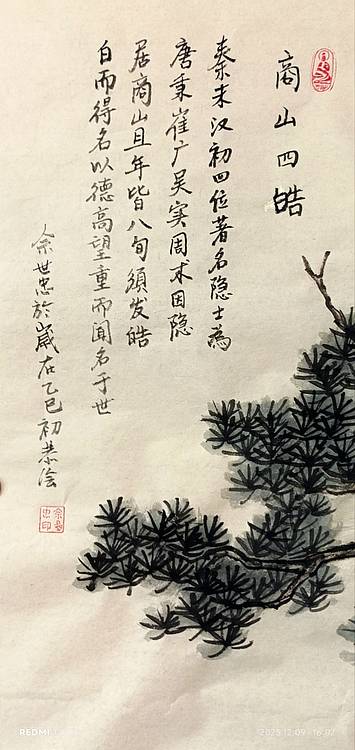 商山四皓
秦末汉初四位著名隐士為
唐秉崔广吴实周术因隐
居商山且年皆八旬须发皓
白而得名以德高望重而闻名于世
余世忠於嵗在乙巳初恭绘
余世忠印
REDMI
2025.12.09 16:07